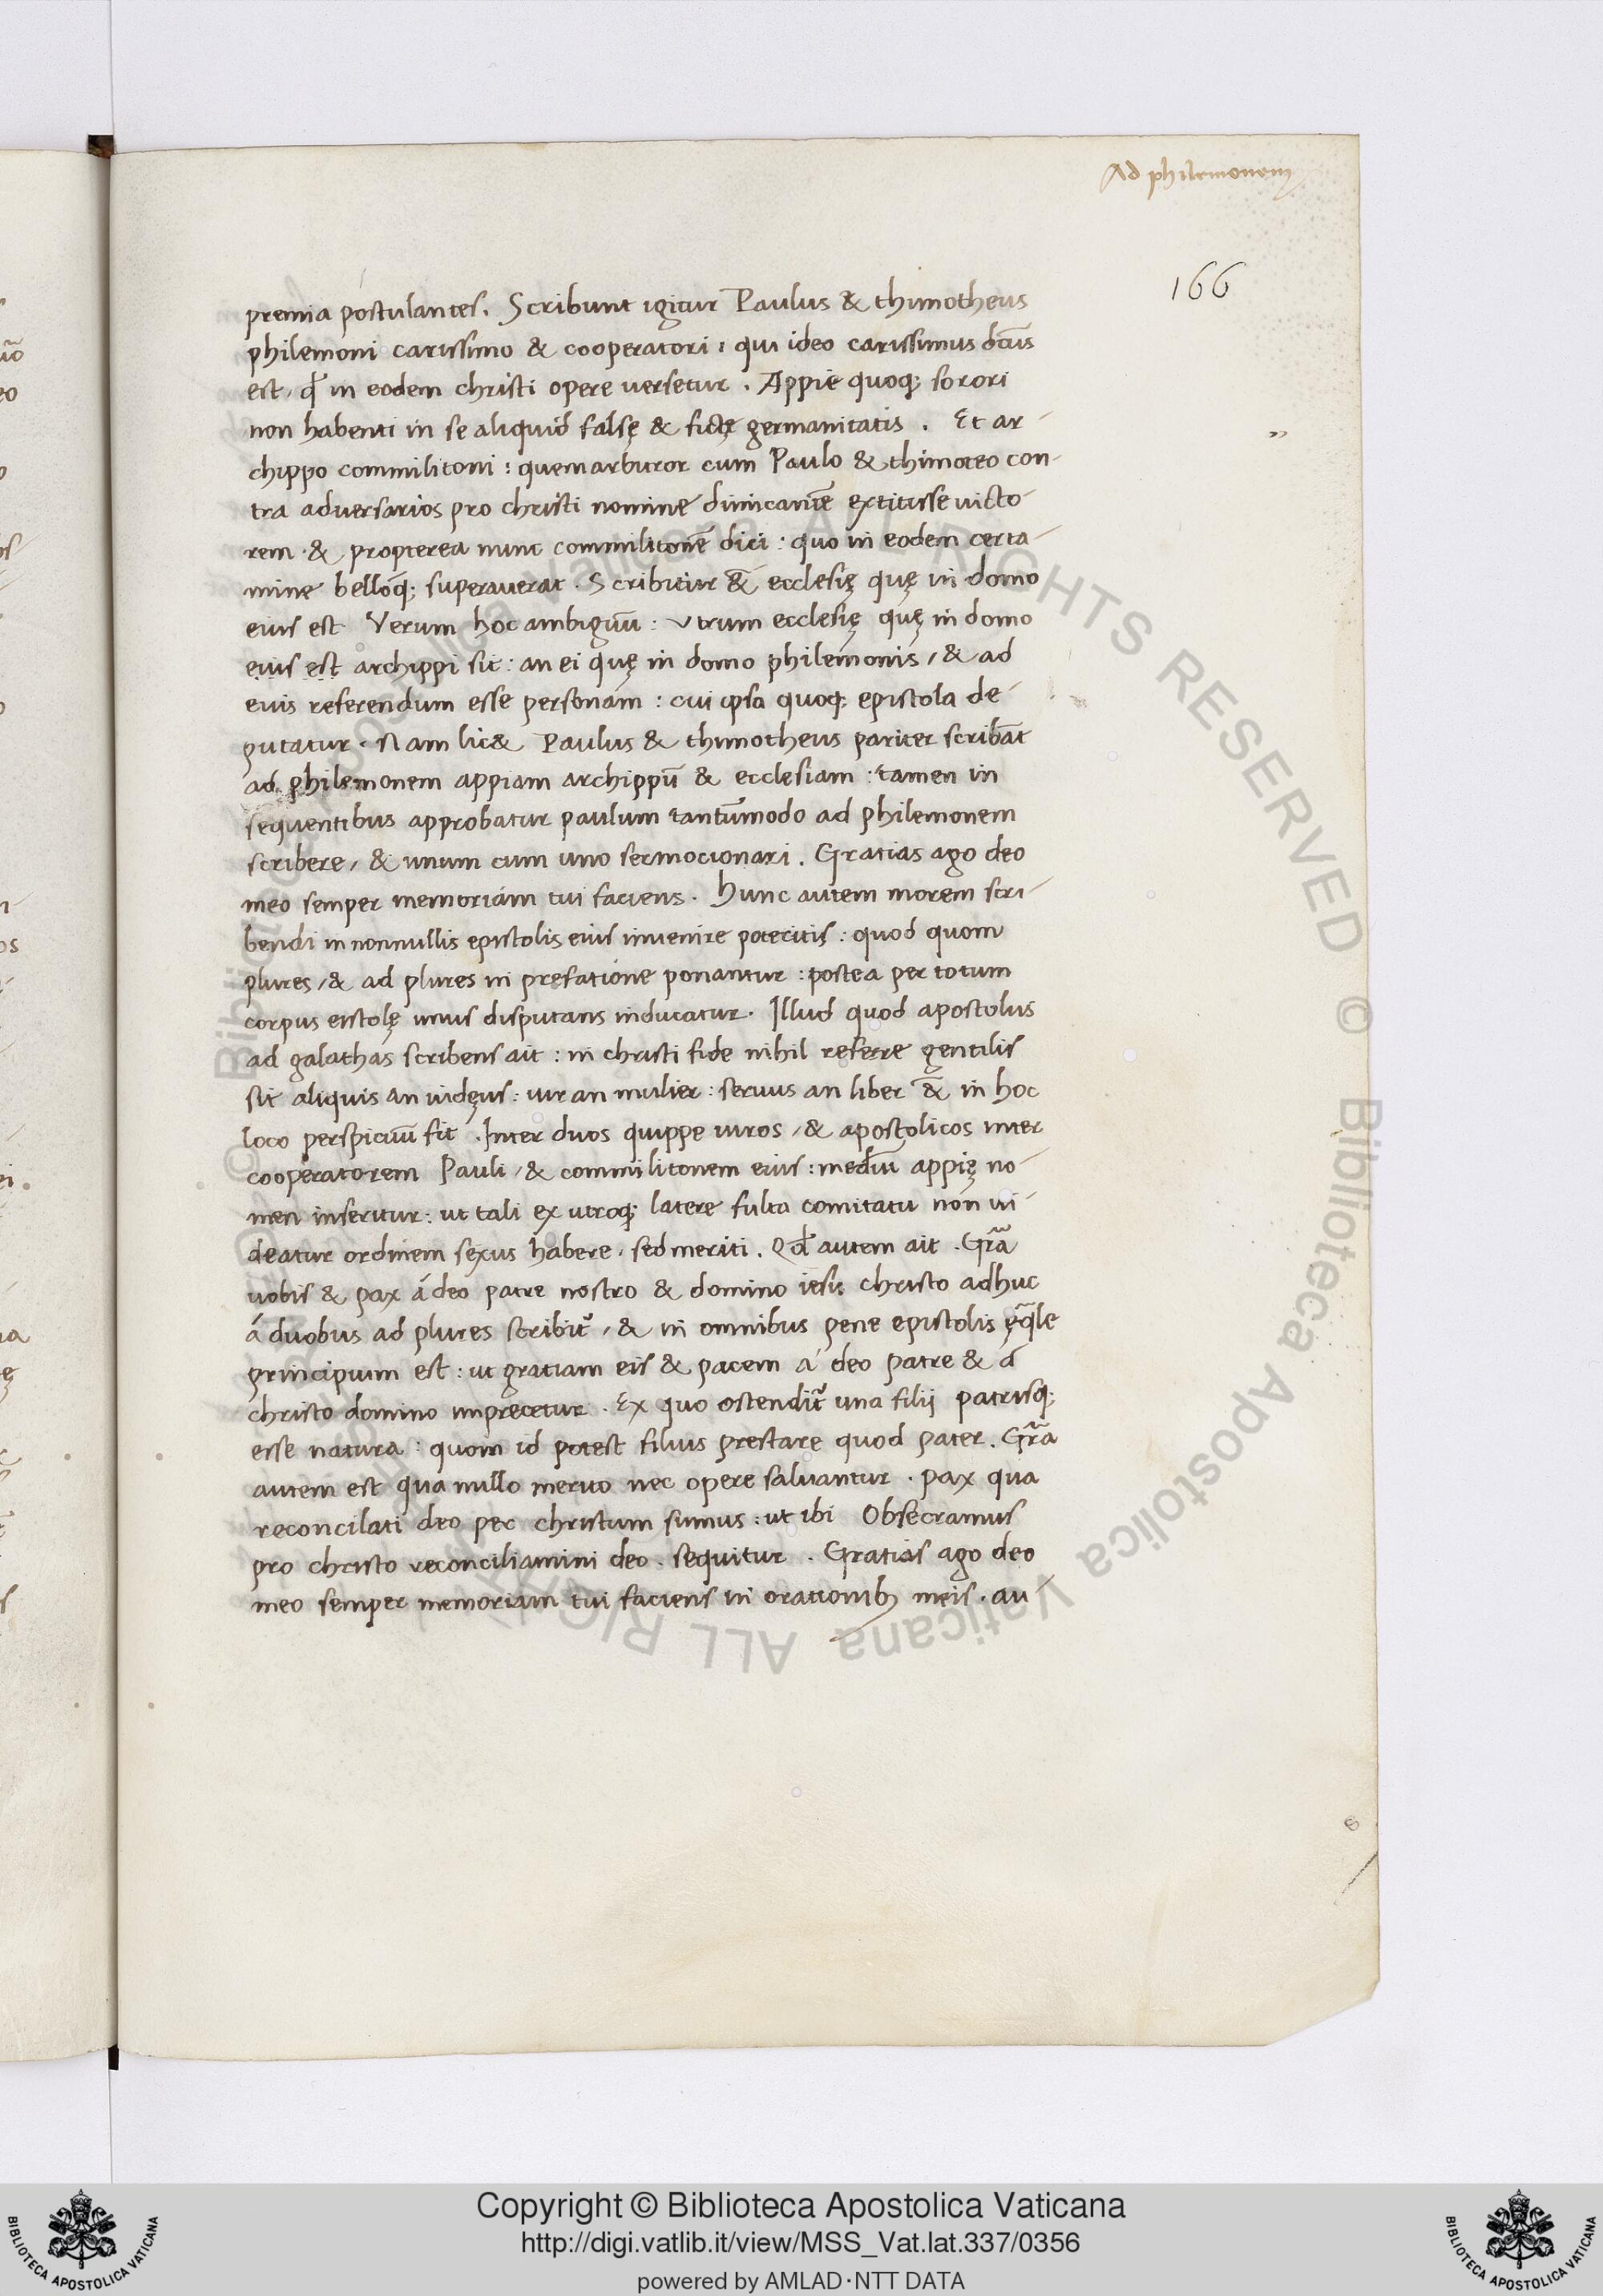 Ad philemonem
166
premia postulantes. Scribunt igitur Paulus & thimotheus
philemoni carissimo & cooperatori: qui ideo carissimus dictus
est, qđ in eodem christi opere versetur. Appie quoq; sorori
non habenti in se aliquid falsę & fictę germanitatis. Et ar-
chippo commilitoni: quem arbitror cum Paulo & thimoteo con-
tra adversarios pro christi nomine dimicantē extitisse victo-
rem. & propterea nunc commilitonē dici: quo in eodem certa-
mine bellōq; superaverat. Scribitur & ecclesię quę in domo
eius est Verum hoc ambiguū: utrum ecclesię quę in domo
eius est archippi sit: an ei quę in domo philemonis, & ad
eius referendum esse personam: cui ipsa quoq; epistola de-
putatur. Nam lic& Paulus & thimotheus pariter scribāt
ad philemonem appiam archippū & ecclesiam: tamen in
sequentibus approbatur paulum tantūmodo ad philemonem
scribere, & unum cum uno sermocionari. Gratias ago deo
meo semper memoriam tui faciens. Hunc autem morem scri-
bendi in nonnullis epistolis eius invenire poteritis: quod quom
plures, & ad plures in prefatione ponantur: postea per totum
corpus eistolę unus disputans inducatur. Illud quod apostolus
ad galathas scribens ait: in christi fide nihil referre gentilis
sit aliquis an iudęus: vir an mulier: servus an liber & in hoc
loco perspicuū fit. Inter duos quippe viros, & apostolicos inter
cooperatorem Pauli, & commilitonem eius: mediū appię no-
men inseritur: ut tali ex utroq; latere fulta comitatu non vi-
deatur ordinem sexus habere, sed meriti. Qđ autem ait. Gr̃a
vobis & pax á deo patre nostro & domino iesu christo adhuc
á duobus ad plures scribit᷑, & in omnibus pene epistolis
principium est: ut gratiam eis & pacem á deo patre & á
christo domino imprecetur. Ex quo ostendit᷑ una filij patrisq;
esse natura: quom id potest filius prestare quod pater. Gr̃a
autem est qua nullo merito nec opere salvantur. pax qua
reconcilati deo per christum sumus: ut ibi Obsecramus
pro christo reconciliamini deo. sequitur. Gratias ago deo
meo semper memoriam tui faciens in orationib; meis. au-
© Biblioteca Apostolica Vaticana ALL RIGHTS RESERVED © Biblioteca Apostolica Vaticana ALL RIGHTS
Copyright © Biblioteca Apostolica Vaticana
http://digi.vatlib.it/view/MSS_Vat.lat.337/0356
powered by AMLAD·NTT DATA
BIBLIOTECA APOSTOLICA VATICANA
BIBLIOTECA APOSTOLICA VATICANA